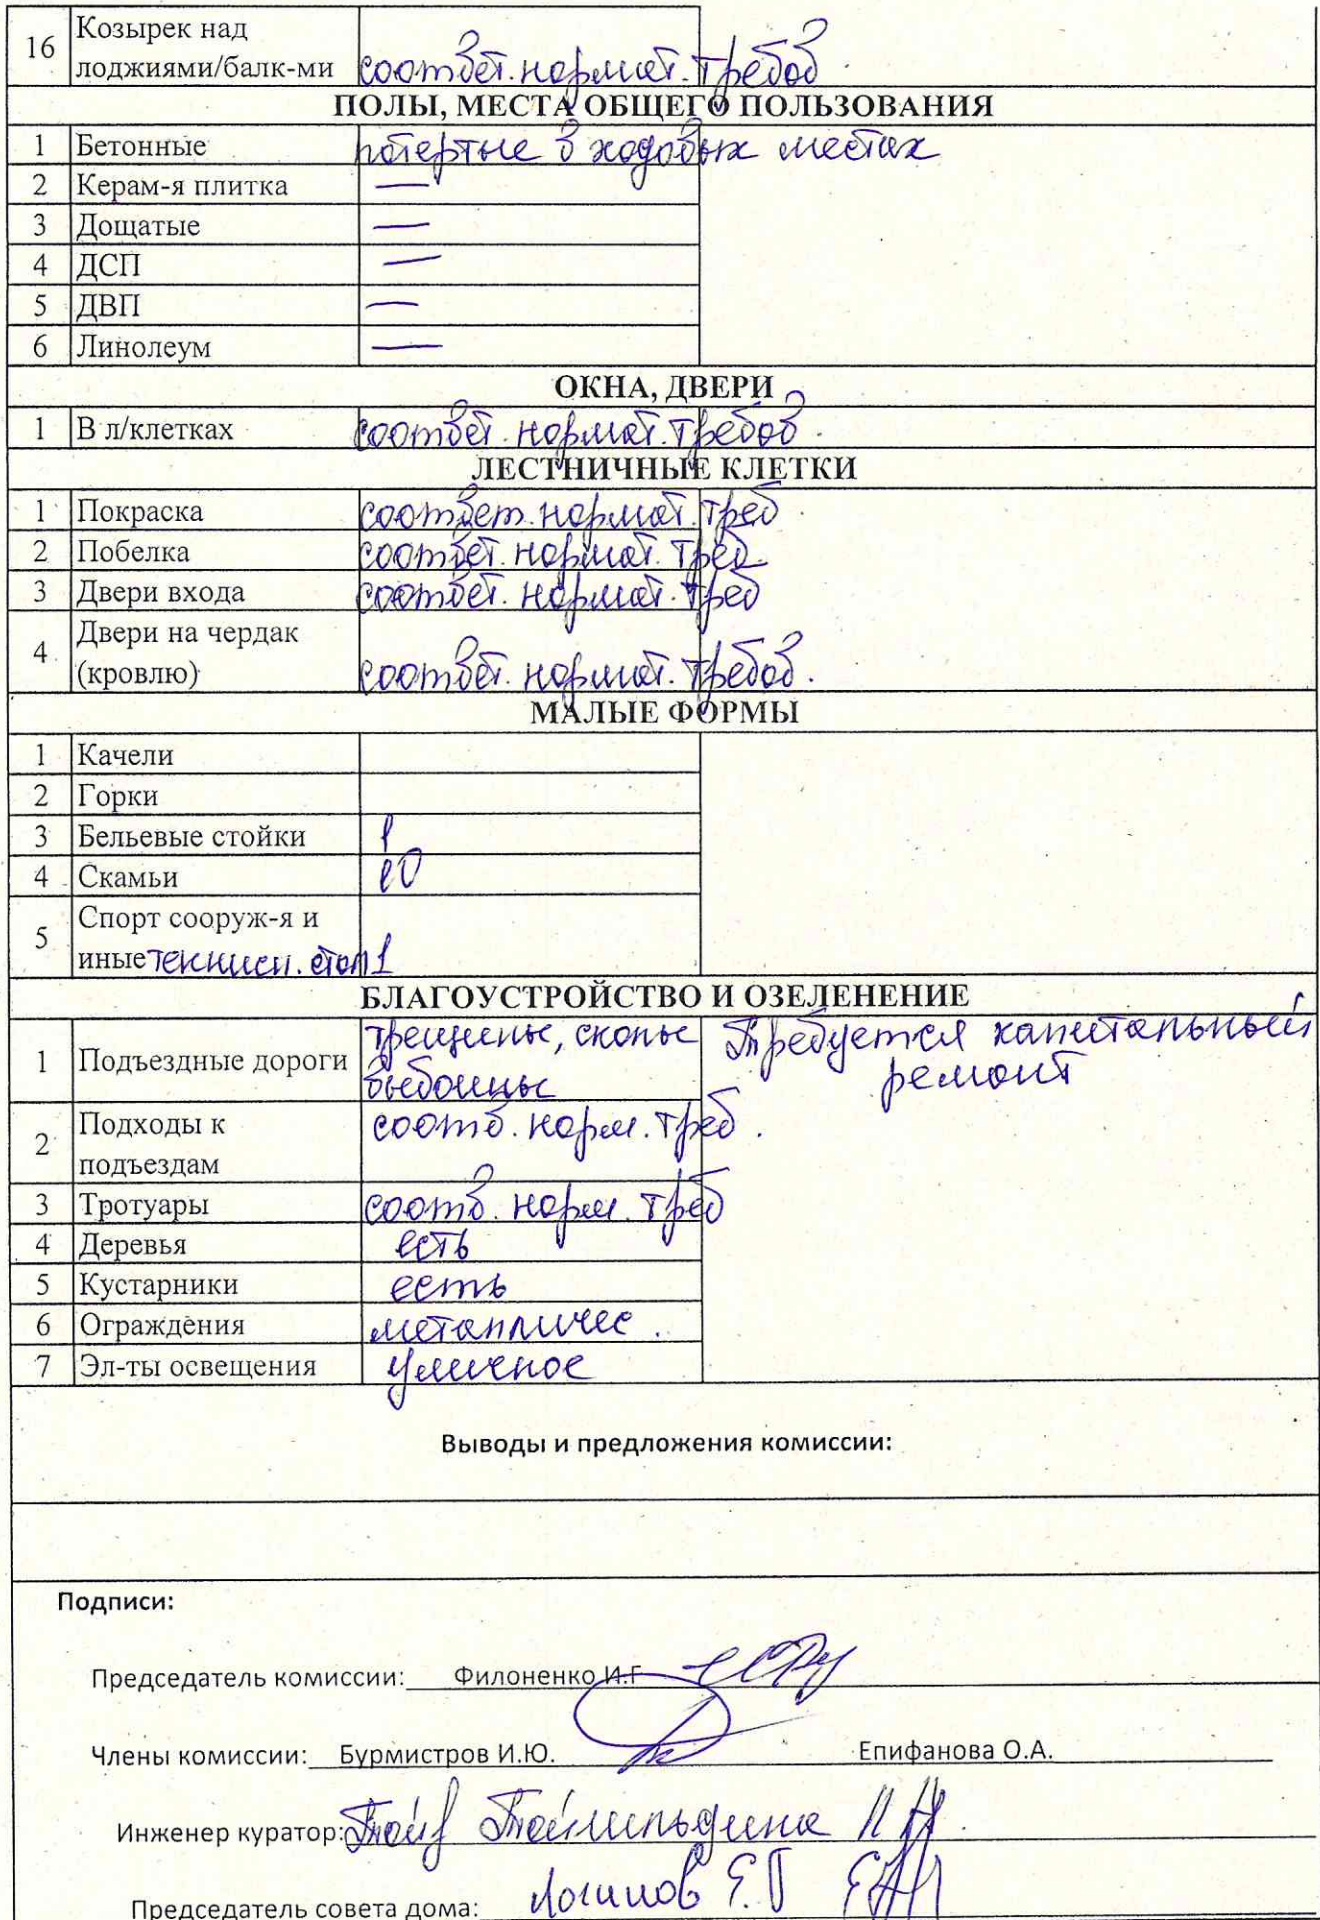 16 Козырек над
лоджиями/балк-ми соответ. нормат. требов
ПОЛЫ, МЕСТА ОБЩЕГО ПОЛЬЗОВАНИЯ
1 Бетонные потертые в ходовых местах
2 Керам-я плитка —
3 Дощатые —
4 ДСП —
5 ДВП —
6 Линолеум —
ОКНА, ДВЕРИ
1 В л/клетках соответ. нормат. требов.
ЛЕСТНИЧНЫЕ КЛЕТКИ
1 Покраска соответ. нормат. треб
2 Побелка соответ. нормат. треб.
3 Двери входа соответ. нормат. треб
4 Двери на чердак
(кровлю) соответ. нормат. требов.
МАЛЫЕ ФОРМЫ
1 Качели
2 Горки
3 Бельевые стойки 1
4 Скамьи 10
5 Спорт сооруж-я и
иные теннисн. стол 1
БЛАГОУСТРОЙСТВО И ОЗЕЛЕНЕНИЕ
1 Подъездные дороги трещины, сколы выбоины Требуется капитальный ремонт
2 Подходы к соотв. норм. треб.
подъездам
3 Тротуары соотв. норм. треб
4 Деревья есть
5 Кустарники есть
6 Ограждения металличес.
7 Эл-ты освещения уличное
Выводы и предложения комиссии:
Подписи:
Председатель комиссии: Филоненко И.Г
Члены комиссии: Бурмистров И.Ю. Епифанова О.А.
Инженер куратор:
Председатель совета дома: Логинов Е.